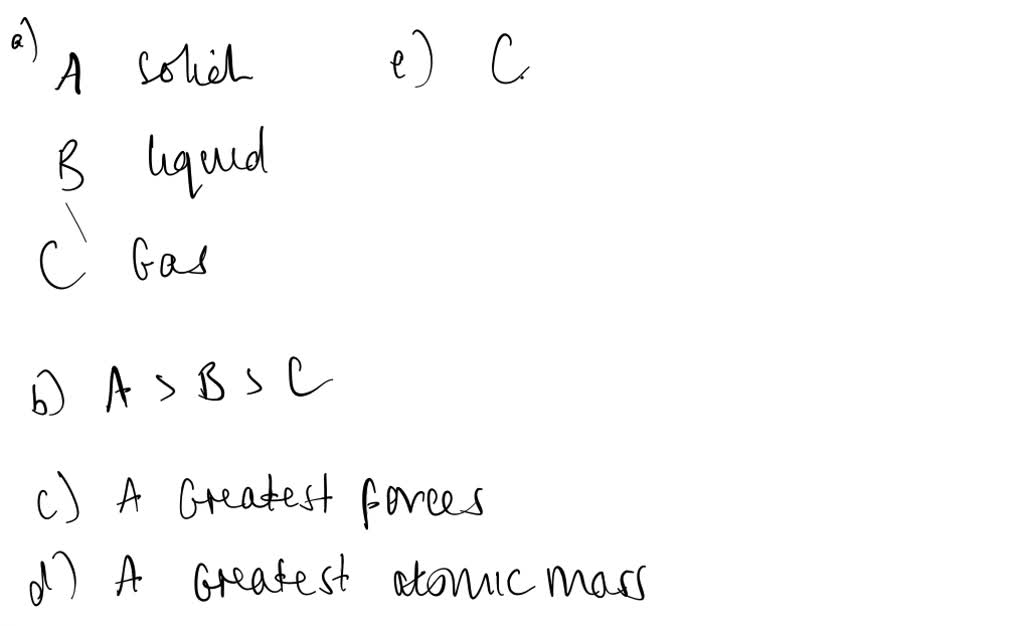 a) A solid
B liquid
C Gas
b) A > B > C
c) A Greatest forces
d) A Greatest atomic mass
e) C